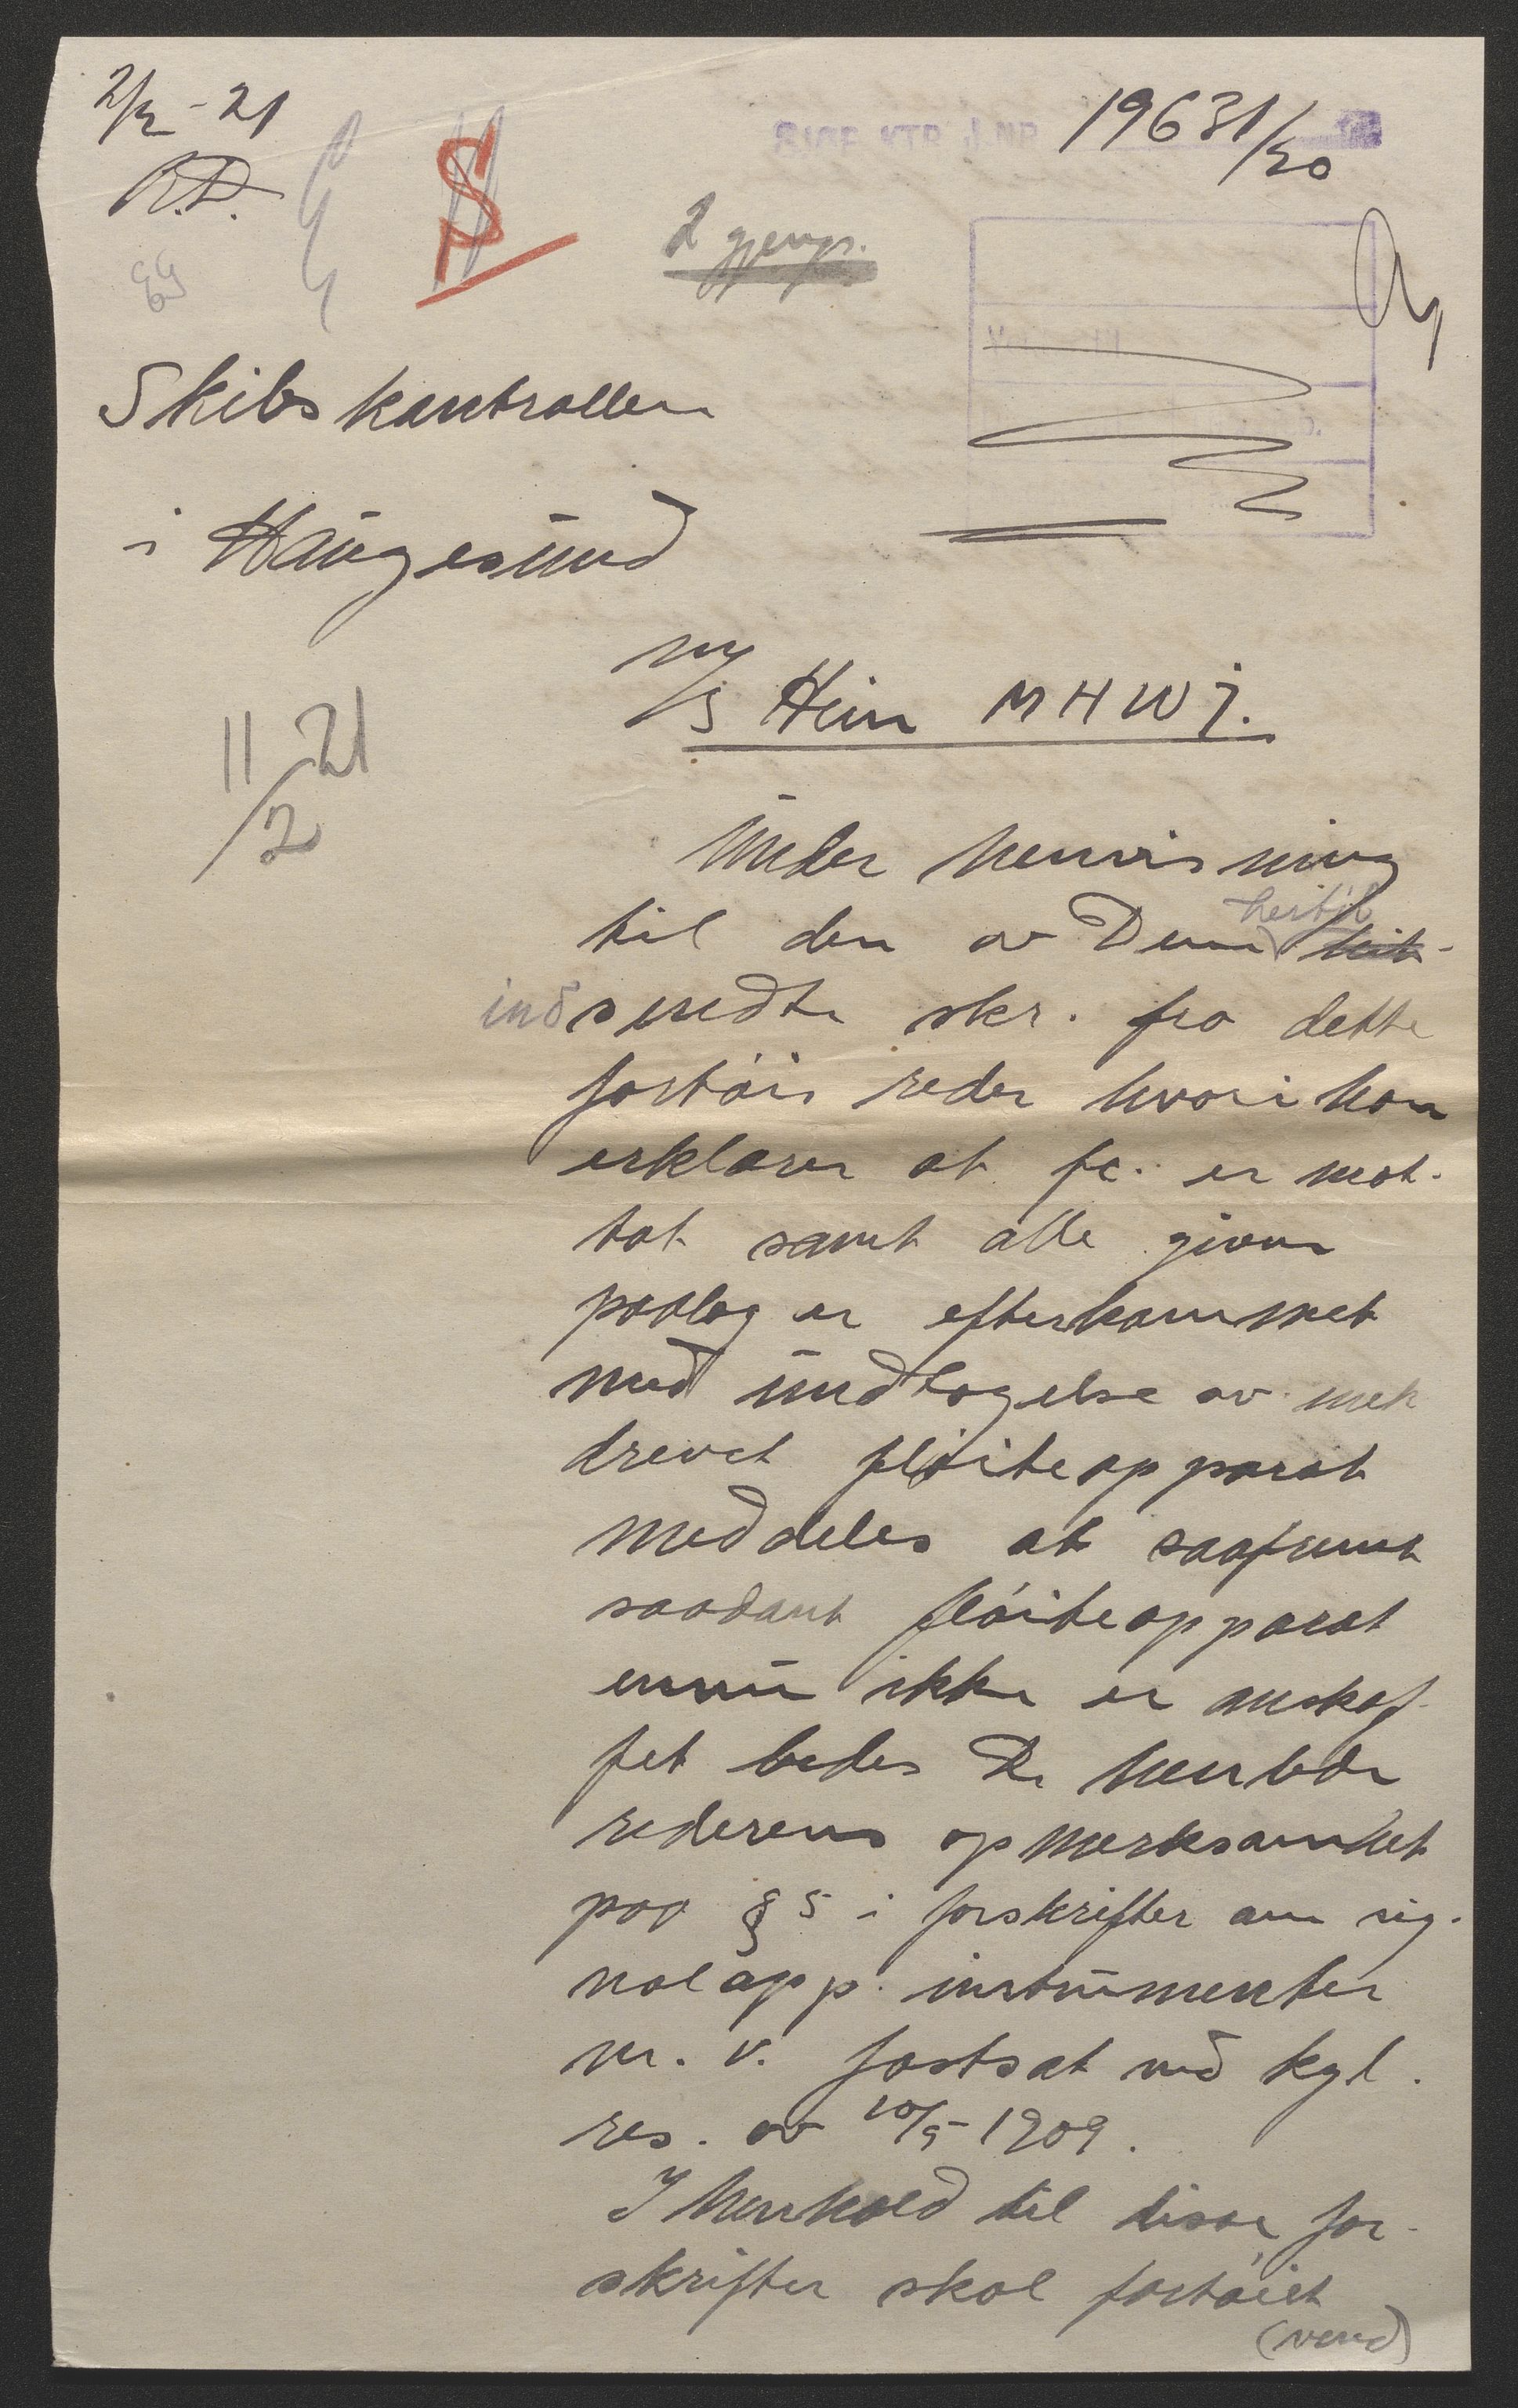 2/2 - 21
SJØF. KTR. J. NR. 19631/20
2 gjenp.
Skibskontrollen
i Haugesund
M/S Hein MHWJ.
11/2 21
Under henvisning
til den av Dem hertil hit-
indsendte skr. fra dette
fartøis reder hvori han
erklærer at fc. er mot-
tat samt alle givne
paalæg er efterkommet
med undtagelse av mek
drevet fløiteapparat
meddeles at saafremt
saadant fløiteapparat
ennu ikke er anskaf-
fet bedes De henlede
rederens opmerksomhet
paa § 5 i forskrifter om sig-
nalapp. instrumenter
m. v. fastsat ved kgl.
res. av 10/5- 1909.
I henhold til disse for-
skrifter skal fartøiet
(vend)